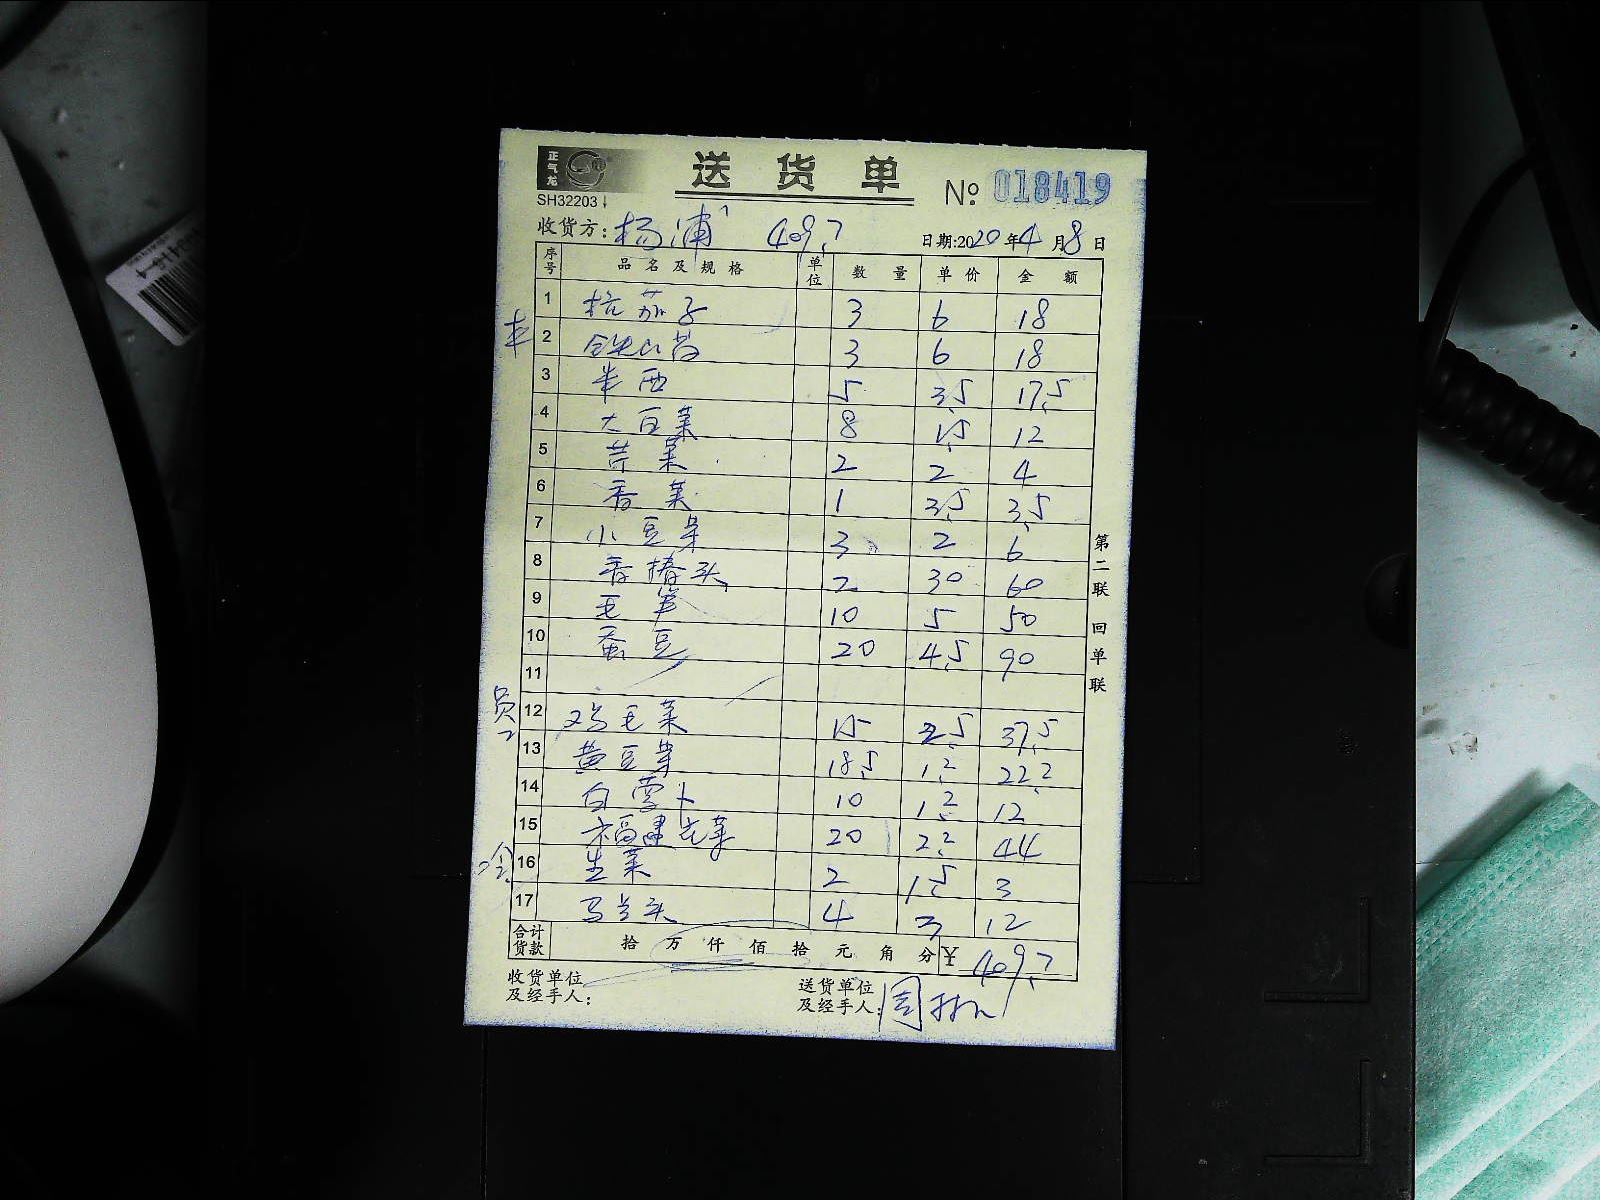 正气龙
送货单
SH32203
№ 018419
收货方：杨浦 409.7 日期:2020年4月8日
序号 品名及规格 单位 数量 单价 金额
1 杭茄子 3 6 18
2 铁山药 3 6 18
3 本西 5 3.5 17.5
4 大豆菜 8 1.5 12
5 芹菜 2 2 4
6 香菜 1 3.5 3.5
7 小豆芽 3 2 6
8 香椿头 2 30 60
9 毛笋 10 5 50
10 蚕豆 20 4.5 90
11
员工
12 鸡毛菜 15 2.5 37.5
13 黄豆芽 18.5 1.2 22.2
14 白萝卜 10 1.2 12
15 福建花菜 20 2.2 44
16 生菜 2 1.5 3
17 马兰头 4 3 12
合计货款 拾万仟佰拾元角分 ¥ 409.7
收货单位及经手人：
送货单位及经手人：周
第二联 回单联